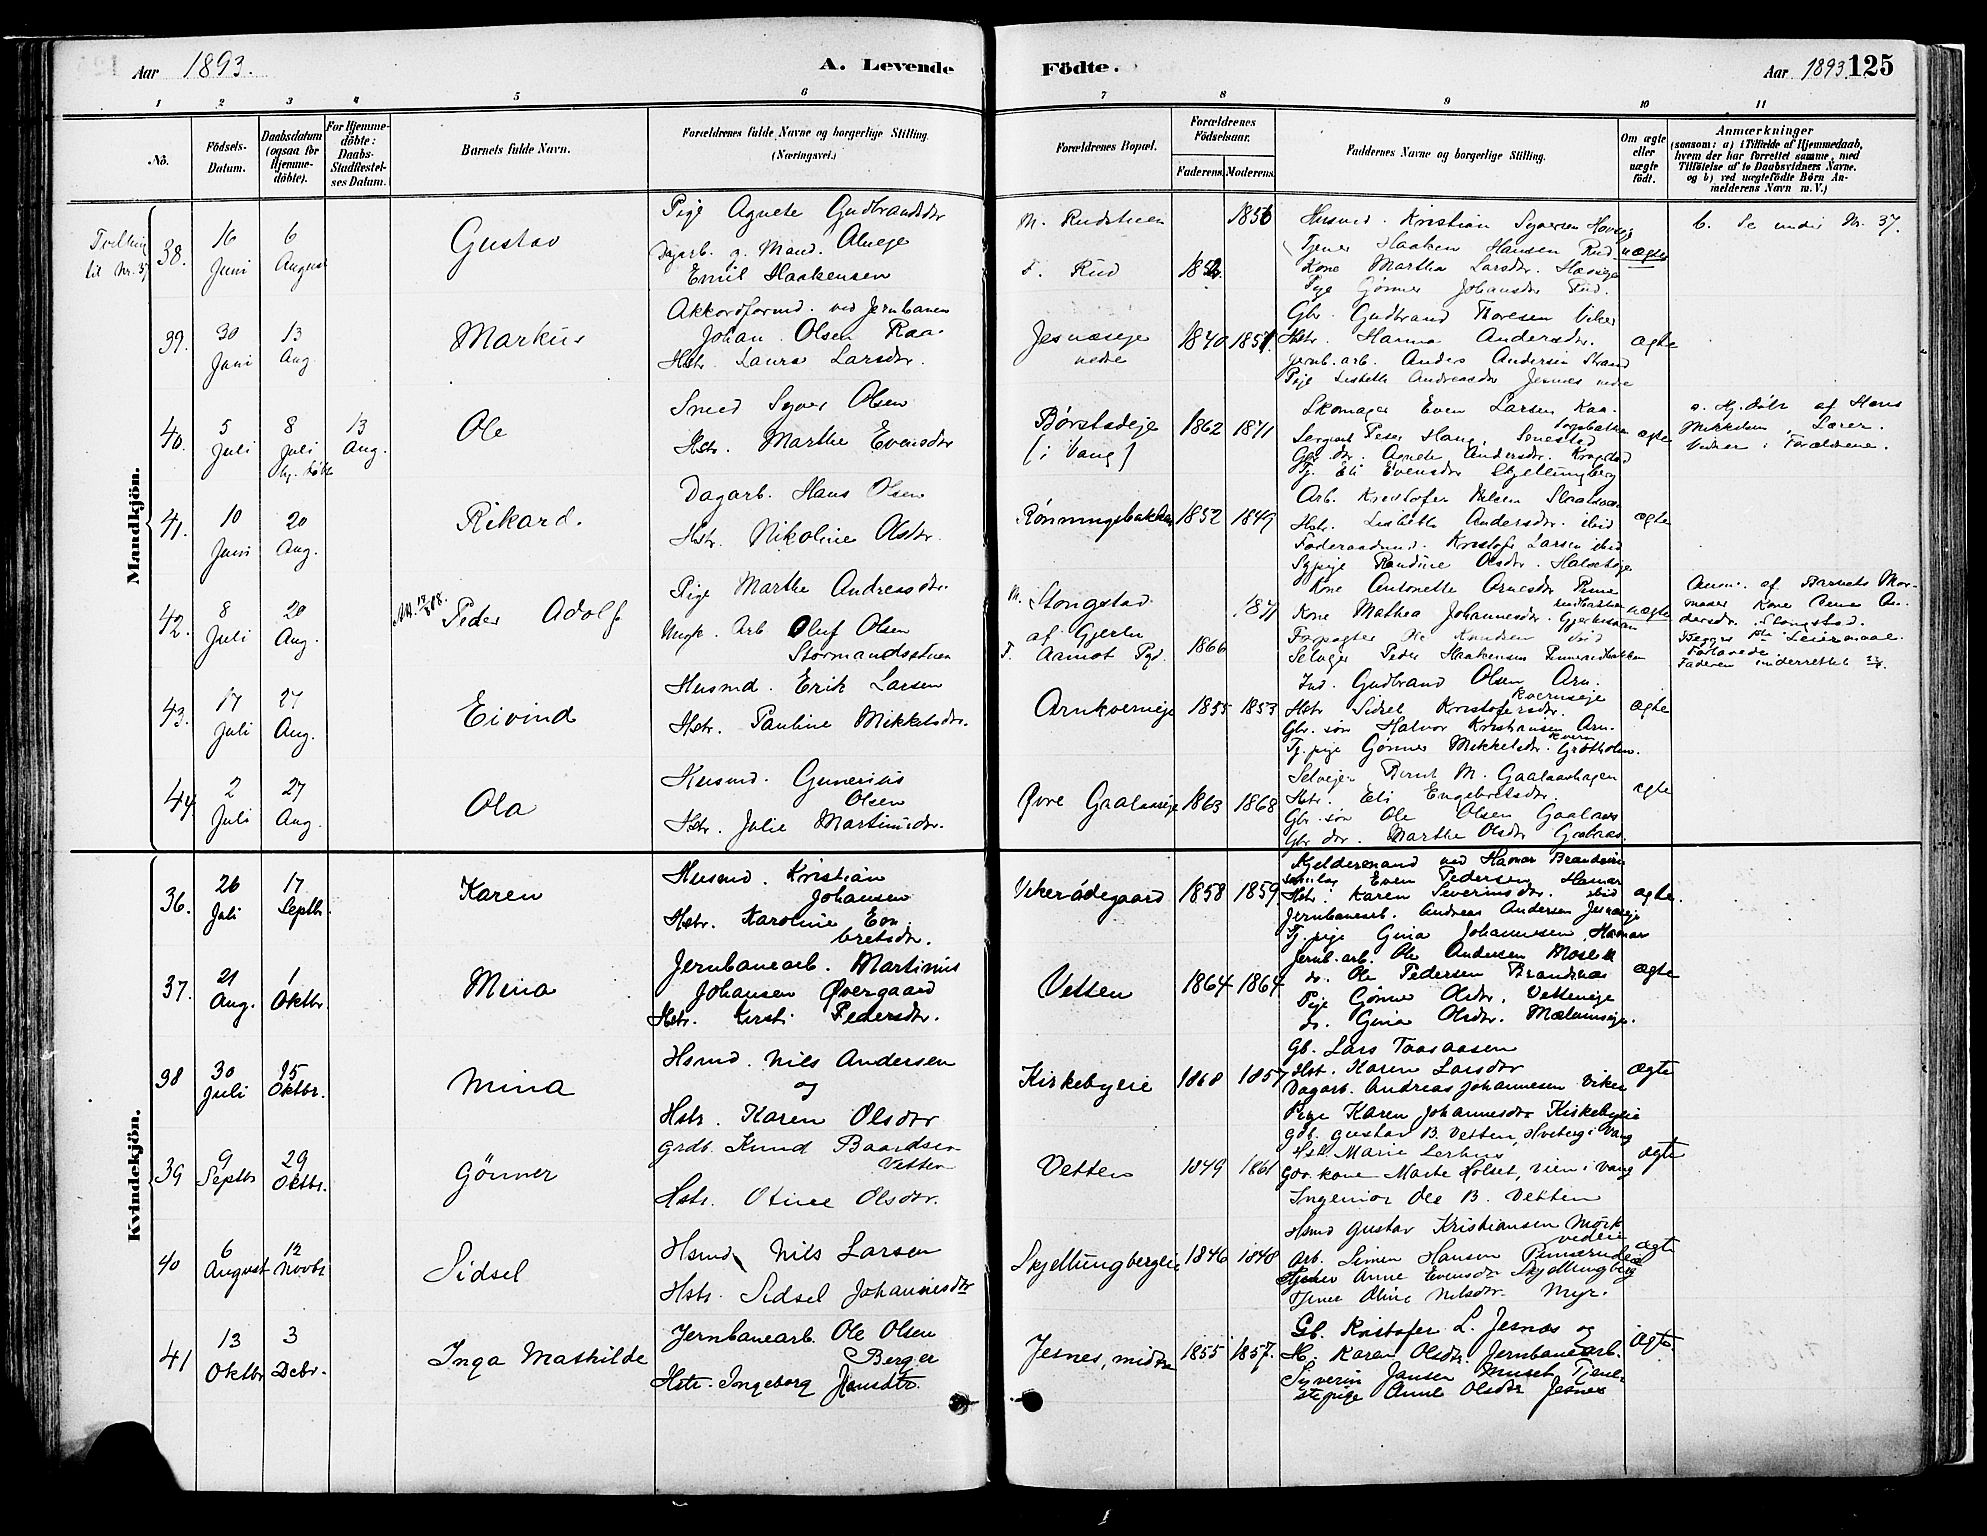 Aar 1893.
A. Levende
Födte.
Aar 1893 125
1 2 3 4 5 6 7 8 9 10 11
No.
Födsels-
Datum.
Daabsdatum
(ogsaa for
Hjemme-
döbte).
For Hjemme-
döbte:
Daabs-
Stadfæstel-
ses Datum.
Barnets fulde Navn.
Forældrenes fulde Navne og borgerlige Stilling.
(Næringsvei.)
Forældrenes Bopæl.
Forældrenes
Födselsaar.
Faderens. Moderens.
Faddernes Navne og borgerlige Stilling.
Om ægte
eller
uægte
födt.
Anmærkninger
(saasom: a) i Tilfælde af Hjemmedaab,
hvem der har forrettet samme, med
Tilföielse af to Daabsvidners Navne.
og b) ved uægtefödte Börn An-
melderens Navn m. V.)
Mandkjön.
Tvilling
til Nr. 37
38.
16
Juni
6
August
Gustav
Pige Agnete Gudbrandsdtr
Dagarb. g. Mand. Alvege
Emil Haakensen
M. Rudstuen
F. Rud
1852
1856
Husmd. Kristian Syversen
Tjener Haaken Hansen Rud
Kone Martha Larsdtr.
Pige Gønner Johansdtr Rud.
uægte
b. Se under Nr. 37.
39.
30
Juni
13
Aug.
Markus
Akkordformd. ved Jernbanen
Johan Olsen Raa
Hstr. Laura Larsdtr.
Jesnæseje
nedre
1840 1851.
Gbr. Gudbrand Thoresen Viker
Hstr. Hanna Andersdtr.
Jernb. arb. Anders Andersen Strand
Pige Lisbeth Andreasdtr Jesnes nedre
ægte
40.
5
Juli
8
Juli
hj. døbt
13
Aug.
Ole
Smed Syver Olsen
Hstr. Marthe Evensdtr
Børstadeje
[i Vang]
1862 1871
Skomager Even Larsen
Sergeant Peder Haug, Senestad
Gbr. dtr. Agnete Andersdtr. Krogstad
Tj. Eli Evensdtr Skjellungberg
ægte
a. Hj. døbt af Hans
Mikkelsen, Lærer.
Vidner: Forældrene.
41.
10
Juni
20
Aug.
Rikard.
Dagarb. Hans Olsen
Hstr. Nikoline Olsdtr.
Rønningsbakken
1852 1849
Arb. Kristofer Nilsen
Hstr. Lisbeth Andersdtr. ibid
Føderaadsmd. Kristofer Larsen ibid
Sypige Randine Olsdtr.
ægte
42.
8
Juli
20
Aug.
Peder Adolf
Pige Marthe Andreasdtr.
Ungk. Arb Oluf Olsen
Stormandsstuen
M. Stongstad
af Gjerlu
F. Aamot Pgd.
1866
1871
Kone Antonette Arnesdtr
Kone Mathea Johannesdtr.
Forpagter Ole Knudsen ibid
Selveger Peder Haakensen
uægte
Anm. af Barnets Mor-
moder Kone Lena An-
dersdtr. Stongstad.
Begges 1ste Leiermaal.
Forlovede
Faderen underrettet
43.
17
Juli
27
Aug.
Eivind
Husmd. Erik Larsen
Hstr. Pauline Mikkelsdtr.
Arnkverneje
1855 1853
Ind. Gudbrand Olsen Arn-
kverneje
Hstr Sidsel Kristofersdtr.
Gbr. søn Halvor Kristiansen Arn-
kvern
Tj. pige Gønner Mikkelsdtr. Grøtholm.
ægte
44
2
Juli
27
Aug.
Ola
Husmd. Gunerius
Olsen
Hstr. Julie Martinusdtr.
Øvre Gaalaaseje
1863 1868
Selvejer Bernt M. Gaalaashagen
Hstr. Eli Engebretsdtr.
Gbr. søn Ole Olsen Gaalaas
Gbr. dtr. Marthe Olsdtr Gaalaas.
ægte
Kvindekjön.
36.
26
Juli
17
Septbr.
Karen
Husmd. Kristian
Johansen
Hstr. Karoline Eng-
bretsdtr.
Vikerødegaard
1858 1859.
Kjeldermand ved Hamar Brændevins-
samlag Even Pedersen Hamar
Hstr. Karen Severinsdtr. ibid
Jernbanearb. Andreas Andersen Jesnæseje
Tj. pige Gina Johannesen, Hamar
ægte.
37.
21
Aug.
1
Oktbr.
Mina
Jernbanearb. Martinus
Johansen Øvergaard
Hstr. Kirsti Pedersdtr.
Vetten
1864 1864
Jernb. arb. Ole Andersen
do. Ole Pedersen
Pige Gønner Olsdtr. Vetteneje
do. Gina Olsdtr. Mælumseje.
ægte
38
30
Juli
15
Oktbr.
Mina
Hsmd. Nils Andersen
og
Hstr. Karen Olsdtr
Kirkebyeie
1868 1857
Gb. Lars Taasaasen
Hstr. Karen Larsdtr
Dagarb. Andreas Johannesen Viker
Pige Karen Johannesdtr Kirkebyeie
ægte
39
9
Septbr
29
Oktbr.
Gönner
Grdb. Knud Baardsen
Vetten
Hstr. Otine Olsdtr.
Vetten
1849 1861
Gdb. Gustav B. Vetten, Hveberg i Vang
Hstr Marie
Gbr. kone Marte Holset, Vien i Vang
Ingeniør Ole B. Vetten
ægte
40
6
August
12
Novbr
Sidsel
Hsmd. Nils Larsen
Hstr. Sidsel Johannesdtr
Skjellungbergeie
1846 1848
Hsmd Gustav Kristiansen Mörk-
vedeie
Arb. Simen Hansen
Tjener Anne Evensdtr Skjellungberg
Tjener Oline Nilsdtr. Myr.
ægte
41
13
Oktbr
3
Decbr.
Inga Mathilde
Jernbanearb. Ole Olsen
Berger
Hstr. Ingeborg Hansdtr.
Jesnes, midtre
1855 1857.
Gb. Kristofer L. Jesnæs og
H. Karen Olsdtr. Jernbanearb.
Syverin Jansen Tjene-
stepige Anne Olsdtr Jesnes
ægte